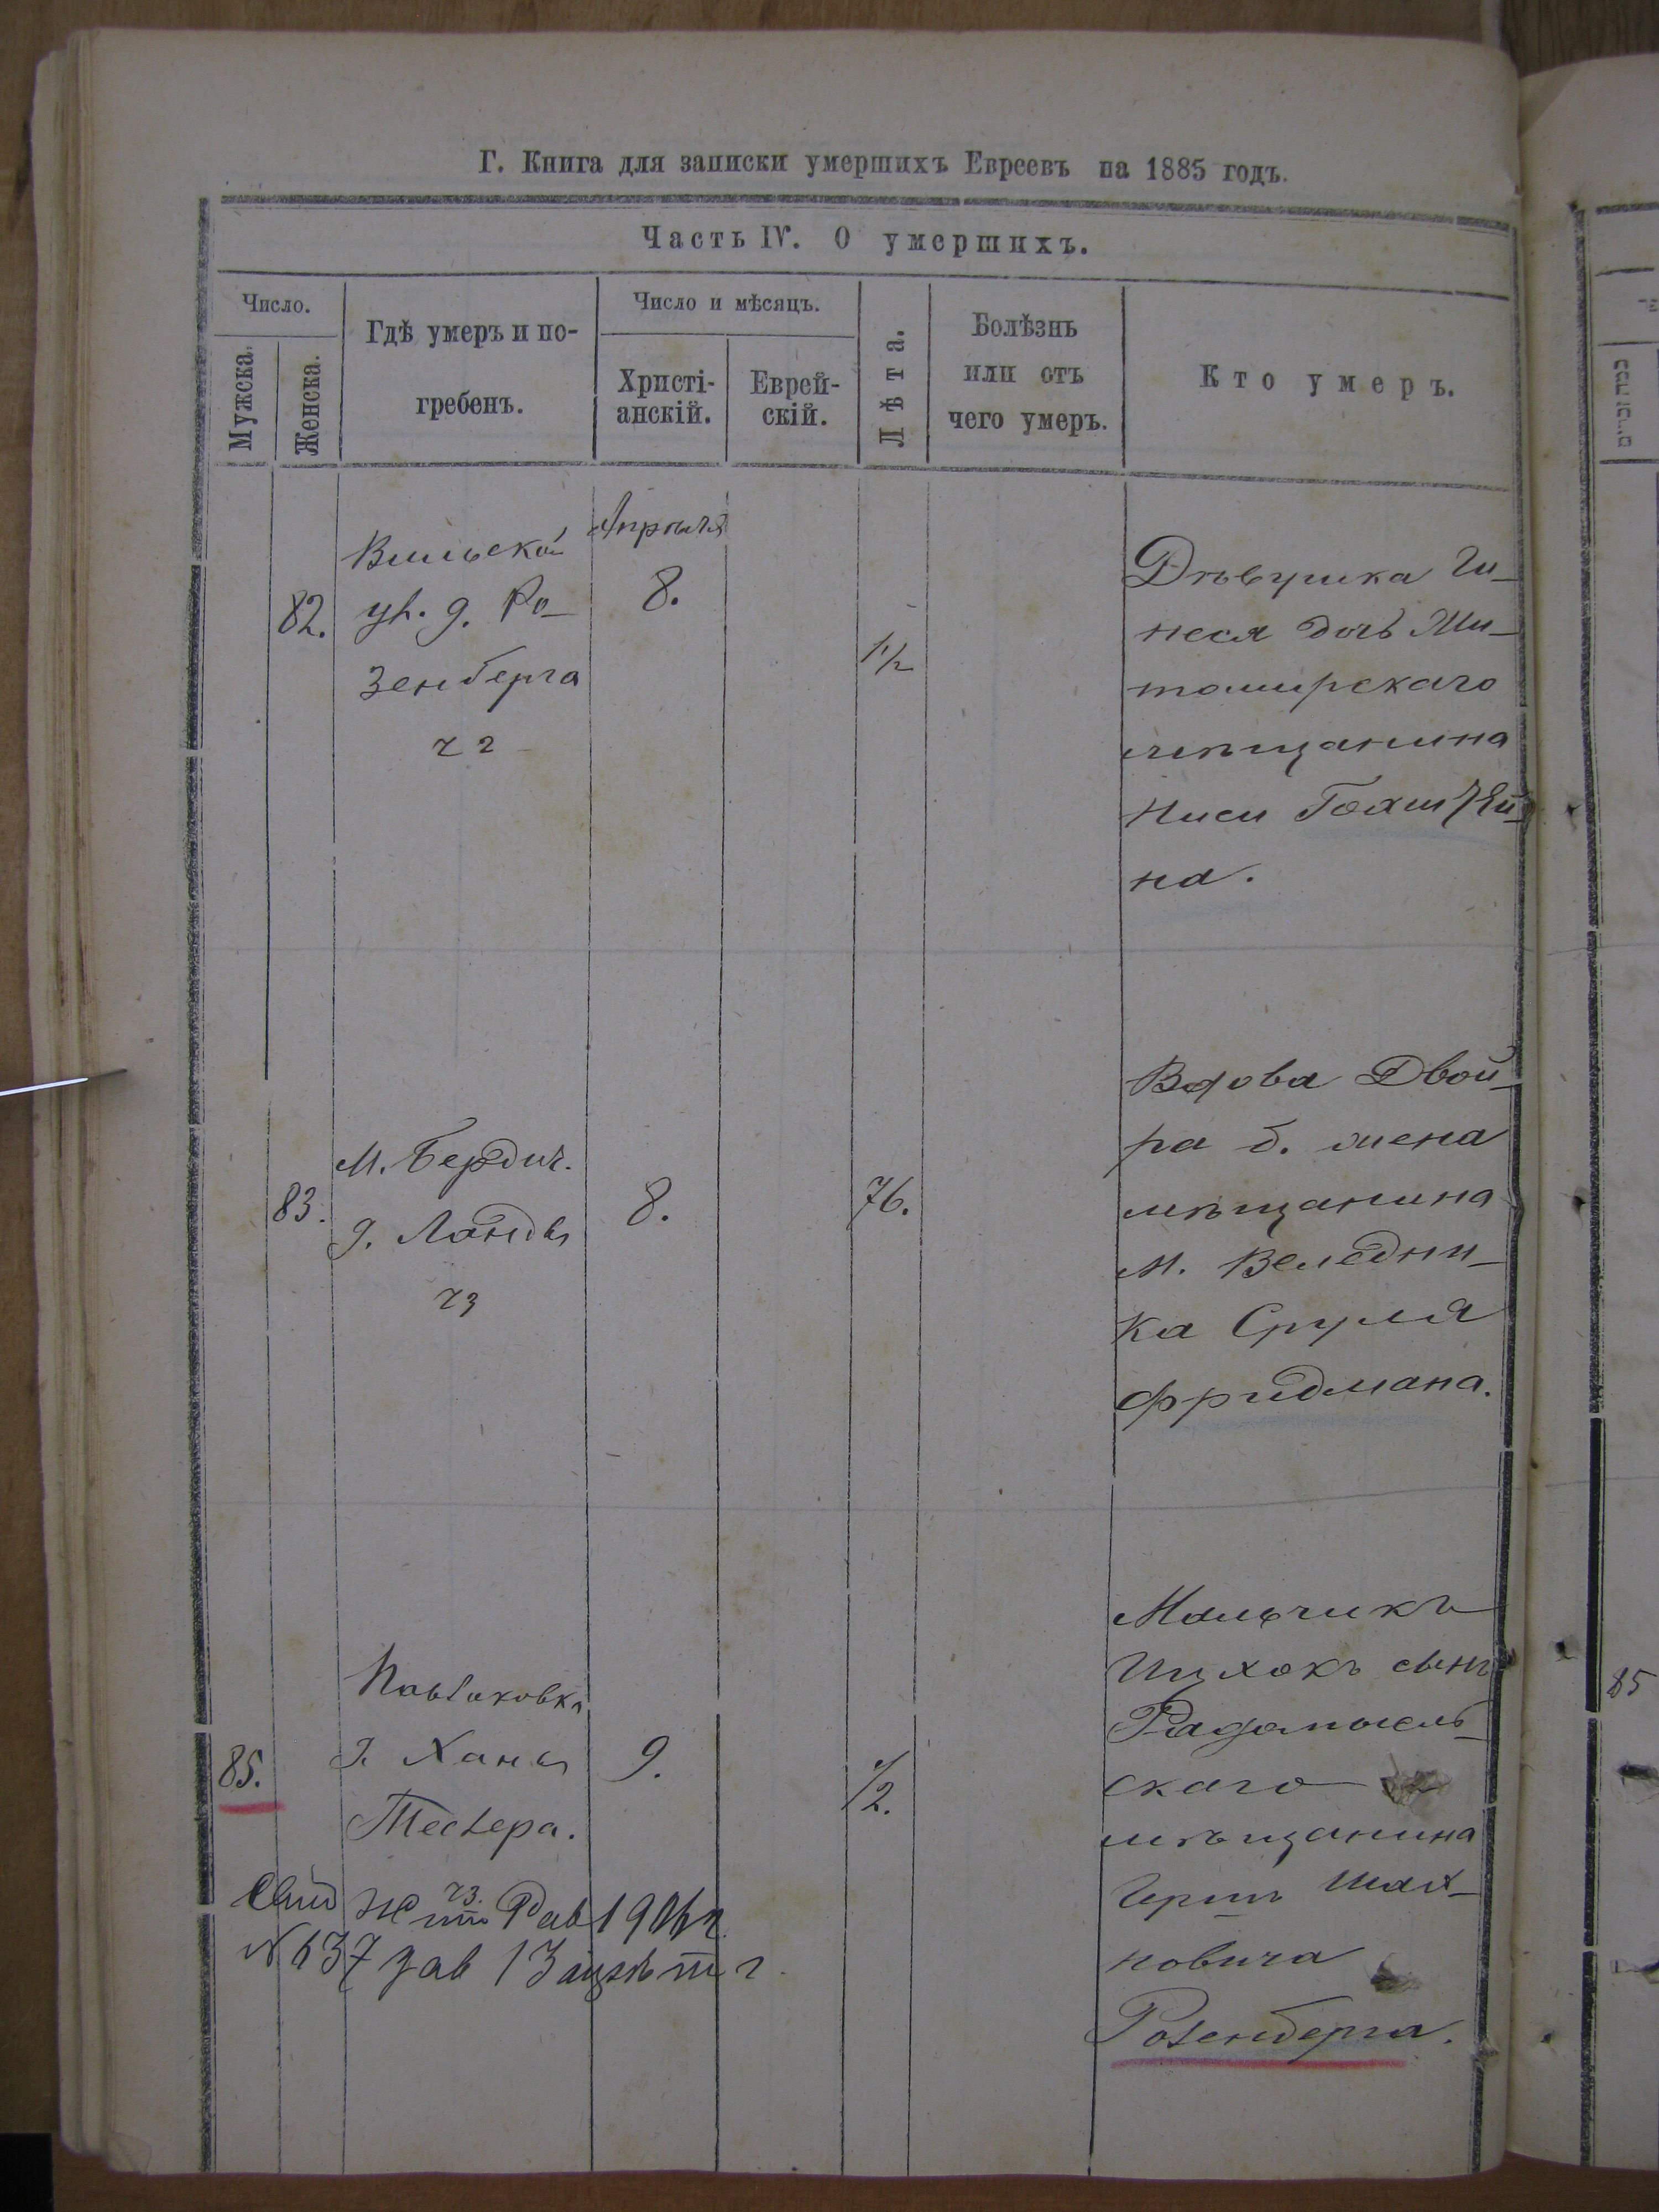 Г. Книга для записки умершихъ Евреевъ на 1885 годъ.
Часть IV. О умершихъ.
Число.
Мужска.
Женска.
Гдѣ умеръ и по-
гребенъ.
Число и мѣсяцъ.
Христі-
анскій.
Еврей-
скій.
Лѣта.
Болѣзнь
или отъ
чего умеръ.
Кто умеръ.
82.
Вильской
ул. д. Ро-
зенберга
ч 2
Апрѣля
8.
1 1/2
Дѣвушка Ги-
неся дочь Жи-
томирскаго
мѣщанина
Ниси Гольдштей-
на.
83.
М. Бердич.
д. Ланды
ч3
8.
76.
Вдова Двой-
ра б. жена
мѣщанина
м. Веледни-
ка Сруля
Фридмана.
85.
Павликовка
д. Ханы
Тестера.
ч3.
9.
1/2.
Мальчикъ
Ицхокъ сынъ
Радомысль-
скаго
мѣщанина
Герша Шах-
новича
Розенберга.
1906 г.
N 637
13
85